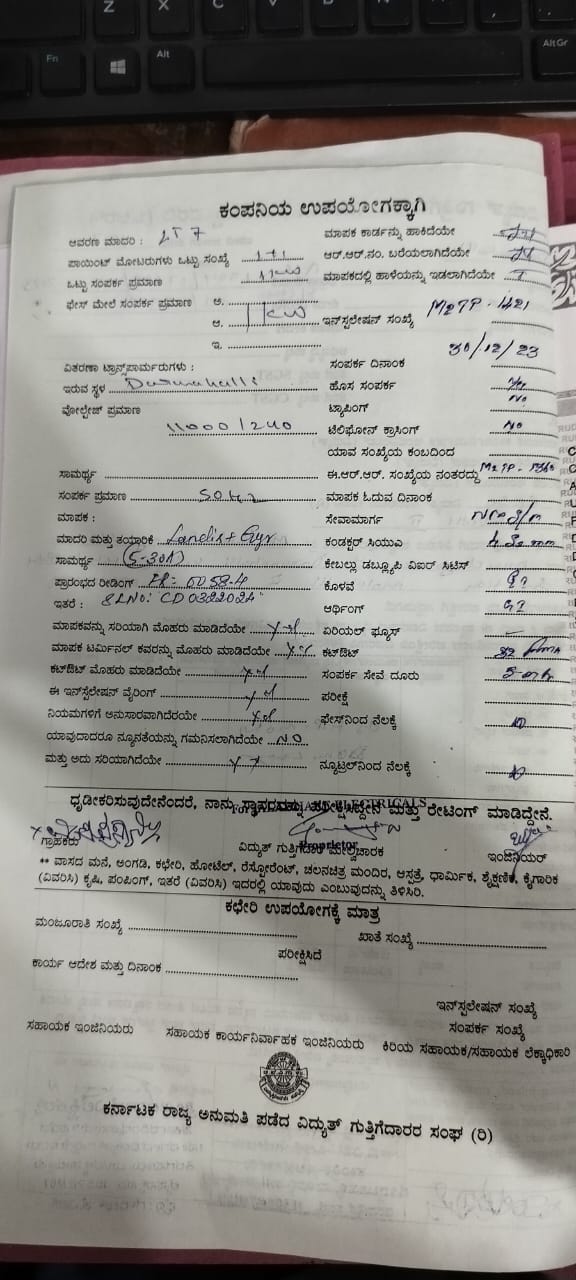 Z X C V B N M
Fn Alt AltGr
ಕಂಪನಿಯ ಉಪಯೋಗಕ್ಕಾಗಿ
ಆವರಣ ಮಾದರಿ : LT 7 ಮಾಪಕ ಕಾರ್ಡನ್ನು ಹಾಕಿದೆಯೇ
ಪಾಯಿಂಟ್ ಮೋಟರುಗಳು ಒಟ್ಟು ಸಂಖ್ಯೆ 1+1 ಆರ್.ಆರ್.ನಂ. ಬರೆಯಲಾಗಿದೆಯೇ
ಒಟ್ಟು ಸಂಪರ್ಕ ಪ್ರಮಾಣ 1 KW ಮಾಪಕದಲ್ಲಿ ಹಾಳೆಯನ್ನು ಇಡಲಾಗಿದೆಯೇ
ಫೇಸ್ ಮೇಲೆ ಸಂಪರ್ಕ ಪ್ರಮಾಣ ಅ.
ಆ. 1 KW ಇನ್‌ಸ್ಟಲೇಷನ್ ಸಂಖ್ಯೆ M2TP-421
ಇ.
ವಿತರಣಾ ಟ್ರಾನ್ಸ್‌ಫಾರ್ಮರುಗಳು : ಸಂಪರ್ಕ ದಿನಾಂಕ 30/12/23
ಇರುವ ಸ್ಥಳ ಹೊಸ ಸಂಪರ್ಕ Yes
ವೋಲ್ಟೇಜ್ ಪ್ರಮಾಣ ಟ್ಯಾಪಿಂಗ್ No
11000/240 ಟೆಲಿಫೋನ್ ಕ್ರಾಸಿಂಗ್ No
ಯಾವ ಸಂಖ್ಯೆಯ ಕಂಬದಿಂದ
ಸಾಮರ್ಥ್ಯ ಈ.ಆರ್.ಆರ್. ಸಂಖ್ಯೆಯ ನಂತರದ್ದು M2TP-
ಸಂಪರ್ಕ ಪ್ರಮಾಣ 50HZ ಮಾಪಕ ಓದುವ ದಿನಾಂಕ
ಮಾಪಕ : ಸೇವಾಮಾರ್ಗ
ಮಾದರಿ ಮತ್ತು ತಯಾರಿಕೆ Landis+Gyr ಕಂಡಕ್ಟರ್ ಸಿಯುಎ
ಸಾಮರ್ಥ್ಯ (5-30A) ಕೇಬಲ್ಲು ಡಬ್ಲ್ಯೂಪಿ ವಿಐರ್ ಸಿಟಿಸ್
ಪ್ರಾರಂಭದ ರೀಡಿಂಗ್ ಕೊಳವೆ GI
ಇತರೆ : SLNO: CD0322024 ಆರ್ಥಿಂಗ್ GI
ಮಾಪಕವನ್ನು ಸರಿಯಾಗಿ ಮೊಹರು ಮಾಡಿದೆಯೇ Yes ಏರಿಯಲ್ ಫ್ಯೂಸ್
ಮಾಪಕ ಟರ್ಮಿನಲ್ ಕವರನ್ನು ಮೊಹರು ಮಾಡಿದೆಯೇ Yes ಕಟ್‌ಔಟ್
ಕಟ್‌ಔಟ್ ಮೊಹರು ಮಾಡಿದೆಯೇ Yes ಸಂಪರ್ಕ ಸೇವೆ ದೂರು
ಈ ಇನ್‌ಸ್ಟಲೇಷನ್ ವೈರಿಂಗ್ Yes ಪರೀಕ್ಷೆ
ನಿಯಮಗಳಿಗೆ ಅನುಸಾರವಾಗಿದೆರಯೇ Yes ಫೇಸ್‌ನಿಂದ ನೆಲಕ್ಕೆ
ಯಾವುದಾದರೂ ನ್ಯೂನತೆಯನ್ನು ಗಮನಿಸಲಾಗಿದೆಯೇ NO
ಮತ್ತು ಅದು ಸರಿಯಾಗಿದೆಯೇ ನ್ಯೂಟ್ರಲ್‌ನಿಂದ ನೆಲಕ್ಕೆ
ಧೃಡೀಕರಿಸುವುದೇನೆಂದರೆ, ನಾನು ಸ್ಥಾವರವನ್ನು ಪರೀಕ್ಷಿಸಿದ್ದೇನೆ ಮತ್ತು ರೇಟಿಂಗ್ ಮಾಡಿದ್ದೇನೆ.
For ELECTRICALS
Proprietor
ಗ್ರಾಹಕರು ವಿದ್ಯುತ್ ಗುತ್ತಿಗೆದಾರ ಮೇಲ್ವಿಚಾರಕ ಇಂಜಿನಿಯರ್
** ವಾಸದ ಮನೆ, ಅಂಗಡಿ, ಕಛೇರಿ, ಹೋಟೆಲ್, ರೆಸ್ಟೋರೆಂಟ್, ಚಲನಚಿತ್ರ ಮಂದಿರ, ಆಸ್ಪತ್ರೆ, ಧಾರ್ಮಿಕ, ಶೈಕ್ಷಣಿಕ, ಕೈಗಾರಿಕ
(ವಿವರಿಸಿ) ಕೃಷಿ, ಪಂಪಿಂಗ್, ಇತರೆ (ವಿವರಿಸಿ) ಇದರಲ್ಲಿ ಯಾವುದು ಎಂಬುವುದನ್ನು ತಿಳಿಸಿರಿ.
ಕಛೇರಿ ಉಪಯೋಗಕ್ಕೆ ಮಾತ್ರ
ಮಂಜೂರಾತಿ ಸಂಖ್ಯೆ ಖಾತೆ ಸಂಖ್ಯೆ
ಪರೀಕ್ಷಿಸಿದೆ
ಕಾರ್ಯ ಆದೇಶ ಮತ್ತು ದಿನಾಂಕ
ಇನ್‌ಸ್ಟಲೇಷನ್ ಸಂಖ್ಯೆ
ಸಂಪರ್ಕ ಸಂಖ್ಯೆ
ಸಹಾಯಕ ಇಂಜಿನಿಯರು ಸಹಾಯಕ ಕಾರ್ಯನಿರ್ವಾಹಕ ಇಂಜಿನಿಯರು ಕಿರಿಯ ಸಹಾಯಕ/ಸಹಾಯಕ ಲೆಕ್ಕಾಧಿಕಾರಿ
ಕರ್ನಾಟಕ ರಾಜ್ಯ ಅನುಮತಿ ಪಡೆದ ವಿದ್ಯುತ್ ಗುತ್ತಿಗೆದಾರರ ಸಂಘ (ರಿ)